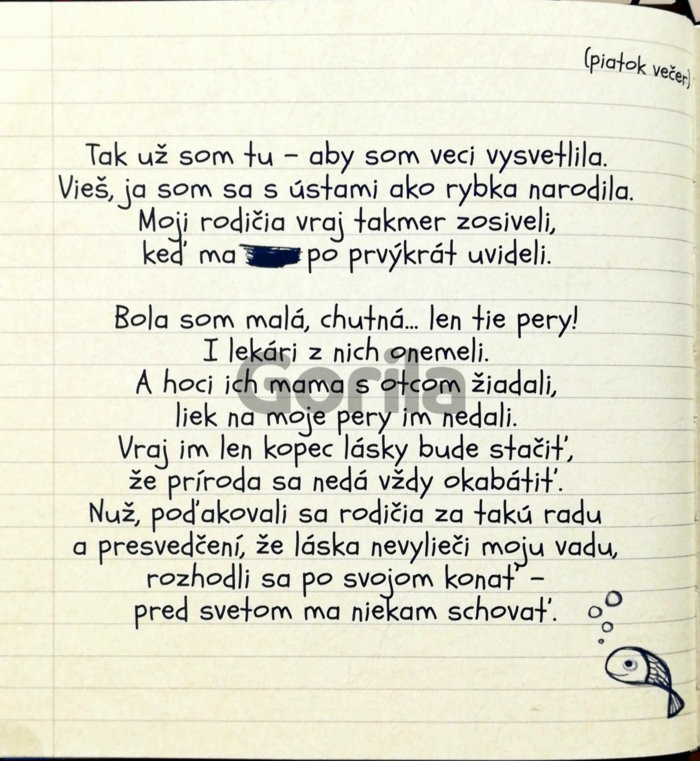 (piatok večer)
Tak už som tu – aby som veci vysvetlila.
Vieš, ja som sa s ústami ako rybka narodila.
Moji rodičia vraj takmer zosiveli,
keď ma po prvýkrát uvideli.
Bola som malá, chutná... len tie pery!
I lekári z nich onemeli.
Gorila
A hoci ich mama s otcom žiadali,
liek na moje pery im nedali.
Vraj im len kopec lásky bude stačiť,
že príroda sa nedá vždy okabátiť.
Nuž, poďakovali sa rodičia za takú radu
a presvedčení, že láska nevylieči moju vadu,
rozhodli sa po svojom konať –
pred svetom ma niekam schovať.